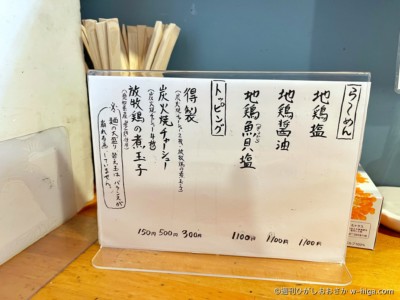 らーめん
地鶏塩
1100円
地鶏醤油
1100円
地鶏魚貝塩
1100円
トッピング
得製
300円
炭火焼チャーシュー
500円
放牧鶏の煮玉子
150円
※麺の大盛り、替え玉は、バランスが
崩れる為していません。
©週刊ひがしおおさか w-higa.com